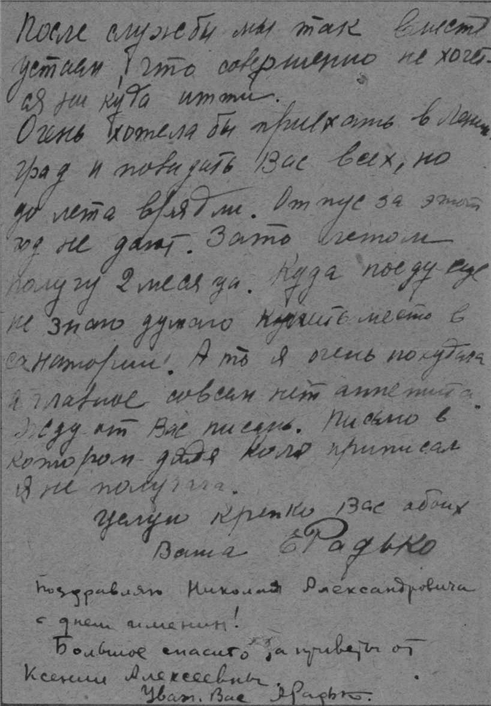 После службы мы так вместе
устаем, что совершенно не хочет-
ся ни куда итти.
Очень хотела бы приехать в Ленин-
град и повидать Вас всех, но
до лета врядли. Отпус за этот
год не дают. Зато летом
получу 2 месяца. Куда поеду еще
не знаю думаю купить место в
санатории! А то я очень похудала
а главное совсем нет аппетита.
Жду от Вас писем. Письмо в
котором дядя Коля приписал
я не получила.
Целую крепко Вас обоих
Ваша ЕРадько
Поздравляю Николая Александровича
с днем именин!
Большое спасибо за приветы от
Ксении Алексеевны.
Уваж. Вас ЯРадько.